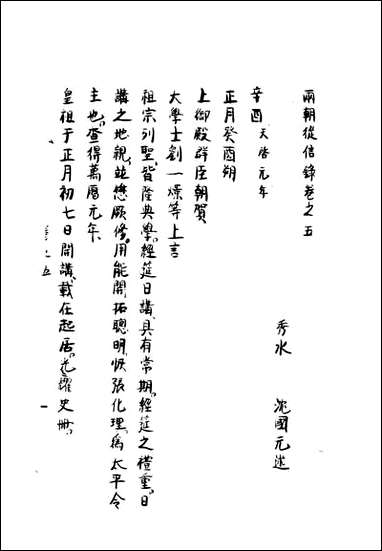 兩朝從信錄卷之五
秀水 沈國元述
辛酉天啓元年
正月癸酉朔
上御殿群臣朝賀
大學士劉一燝等上言
祖宗列聖皆隆典學經筵日講具有常期經筵之禮重日
講之地親並懋厥修用能開拓聰明恢張化理為太平令
主也查得萬曆元年
皇祖于正月初七日開講載在起居光耀史冊
卷之五 一